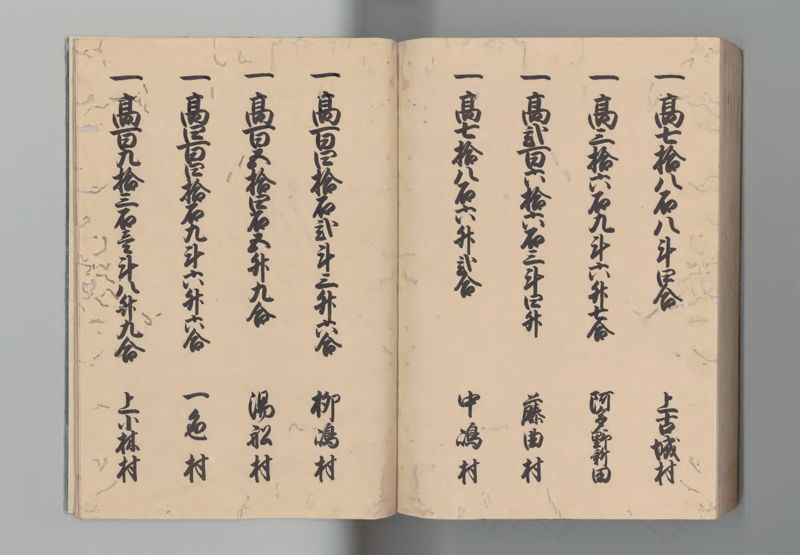 一 高七拾八石八斗四合 上古城村
一 高三拾六石九斗六升七合 阿多野新田
一 高弐百六拾六石三斗四升 藤曲村
一 高七拾八石六升弐合 中嶋村
一 高百四拾石弐斗三升六合 柳嶋村
一 高百五拾四石五升九合 湯舩村
一 高四百四拾石九斗六升六合 一色村
一 高百九拾三石壱斗八升九合 上小林村